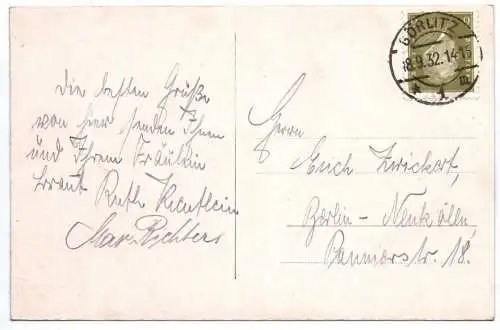 GÖRLITZ
18.9.32.14-15
* 1 B
6
Die besten Grüße
von hier senden Ihnen
und Ihrem Fräulein
Braut Ruth
Max Richters
Herrn
Erich Zwickert,
Berlin - Neukölln,
Pannierstr. 18.